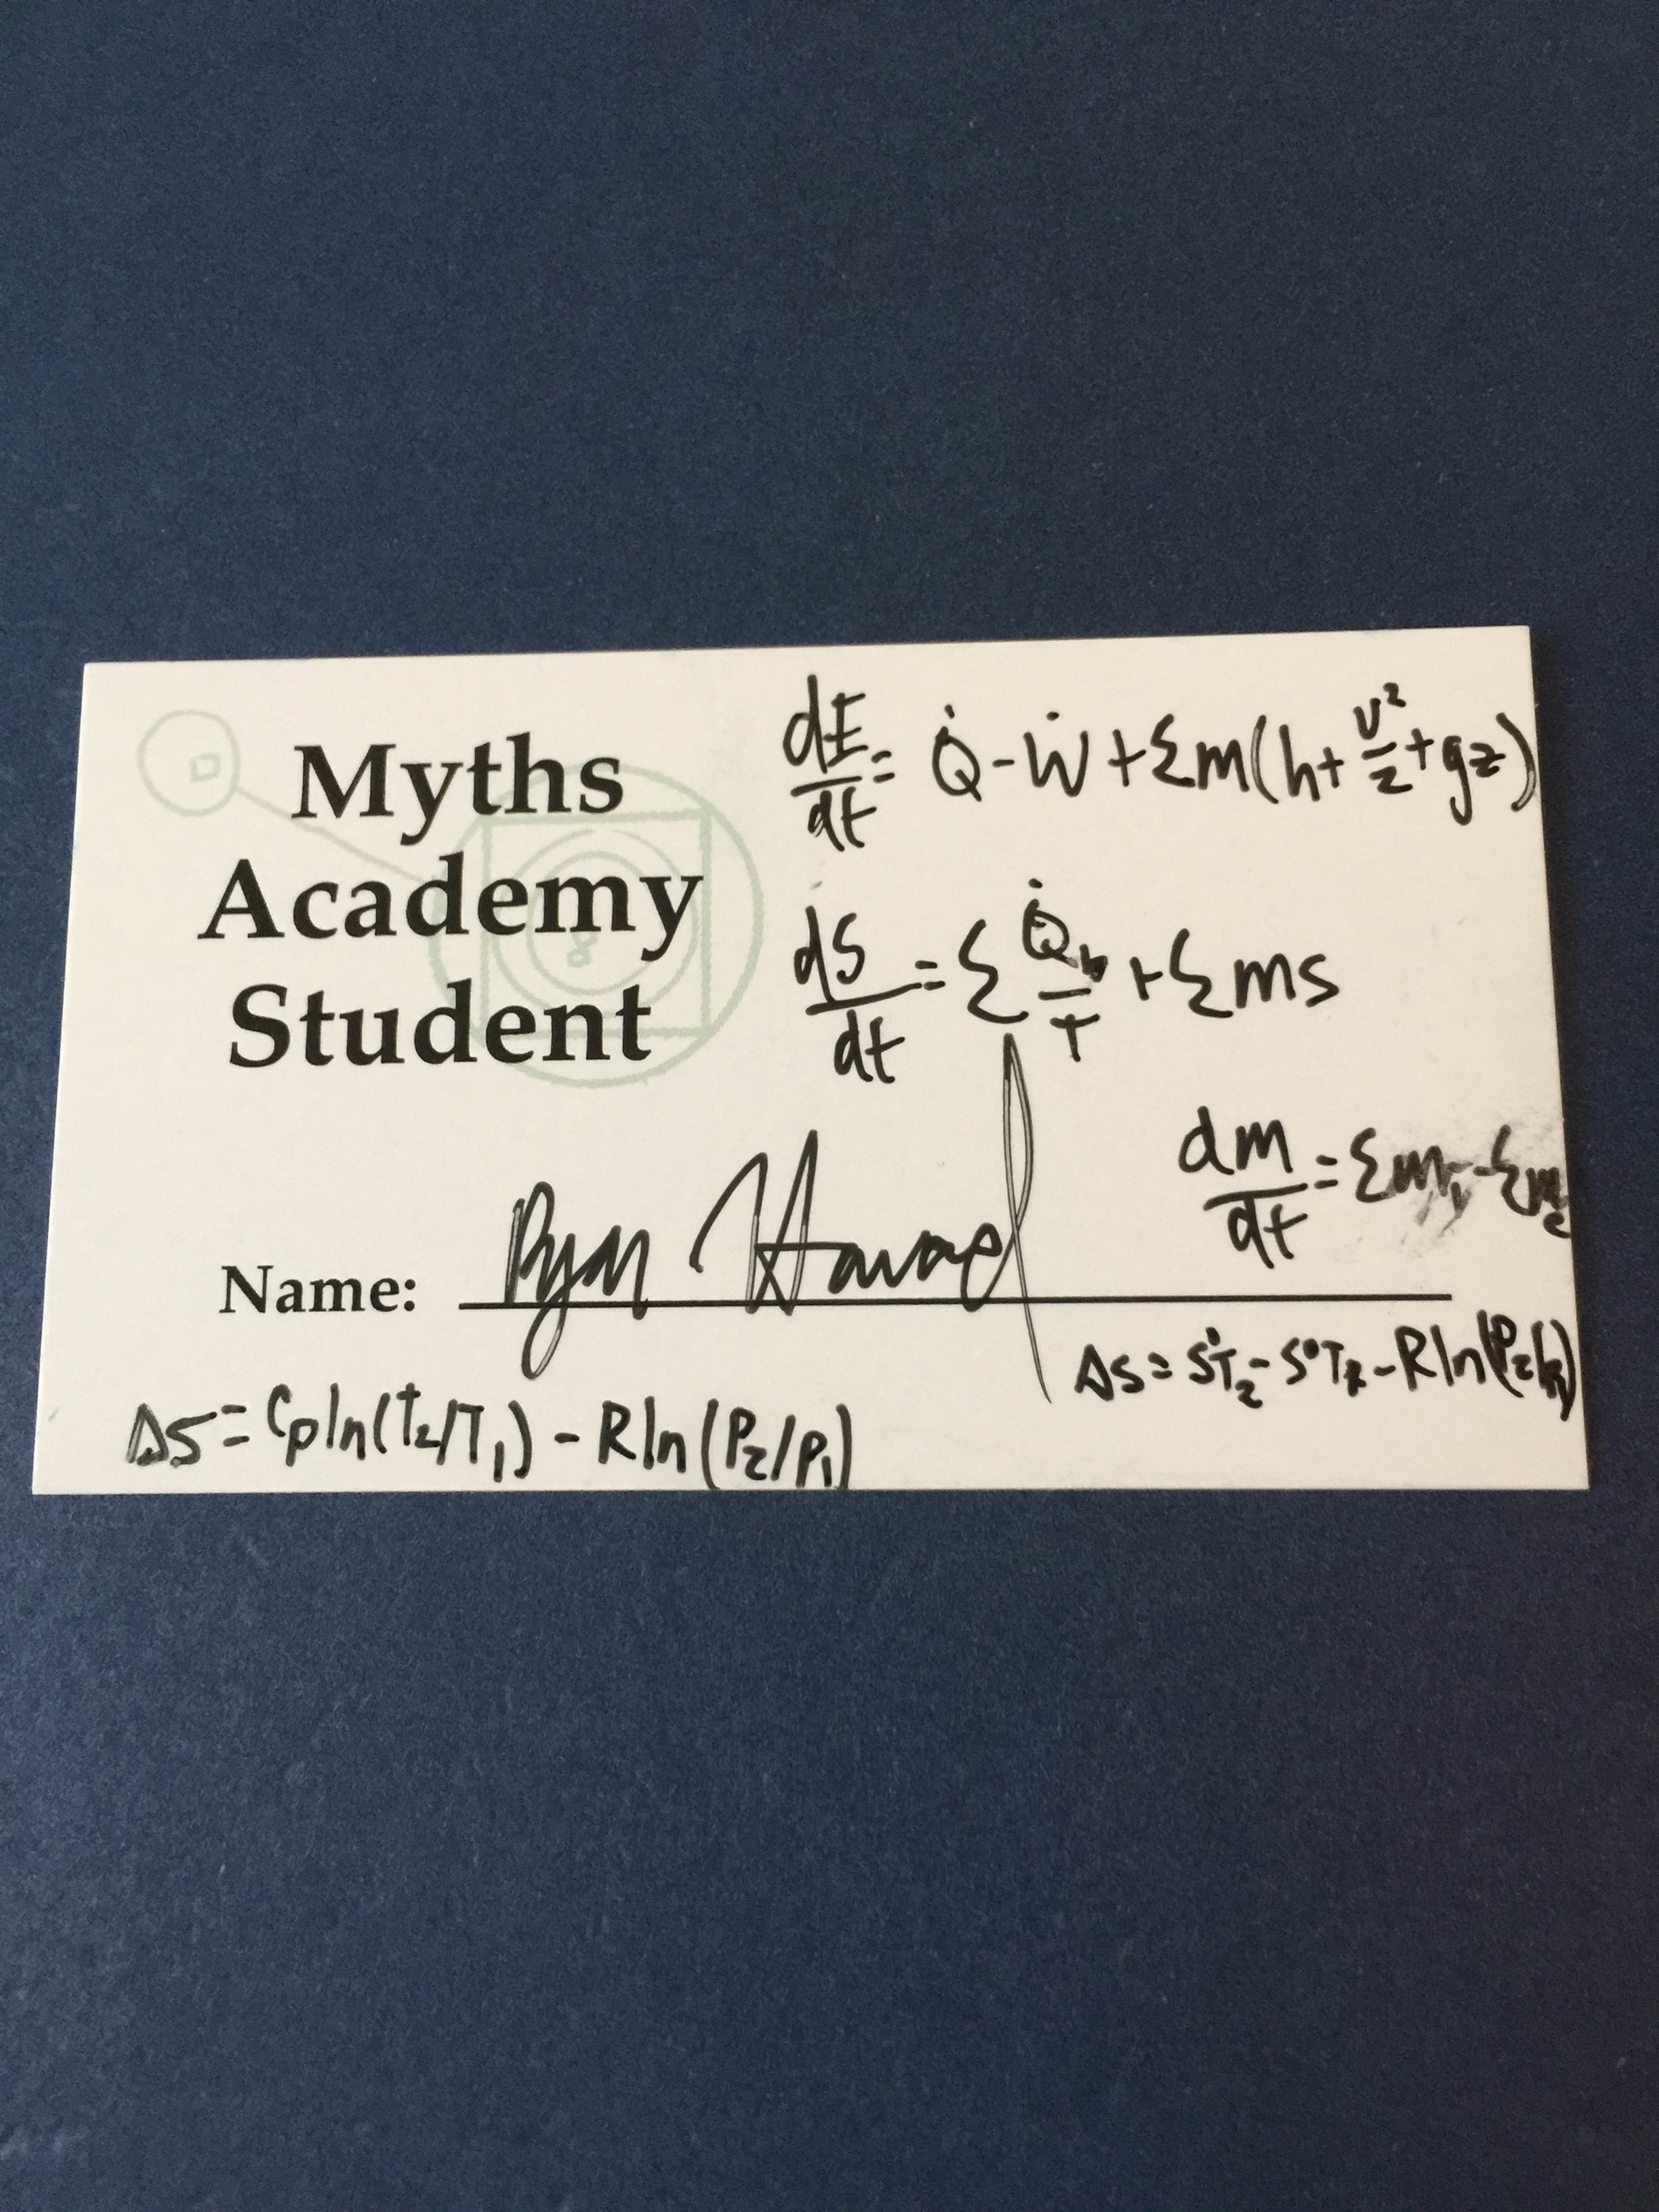 Myths
Academy
Student
dE/dt = Q̇ - Ẇ + Σm(h + V²/2 + gz)
dS/dt = Σ Q̇b/T + Σms
dm/dt = Σmi - Σme
Name: Ryan
Δs = s°T2 - s°T1 - R ln(P2/P1)
ΔS = Cp ln(T2/T1) - R ln(P2/P1)